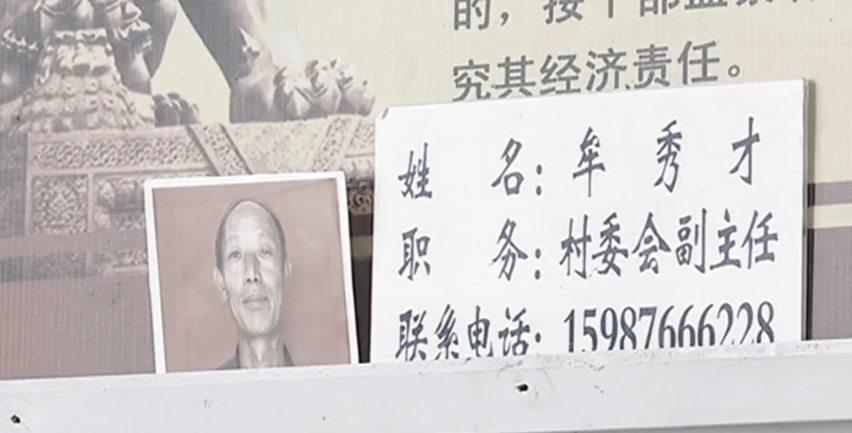 究其经济责任。
姓 名：牟秀才
职 务：村委会副主任
联系电话：15987666228